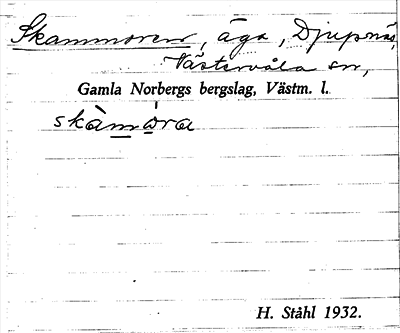 Skammoren, äga, Djupnäs,
Västervåla sn,
Gamla Norbergs bergslag, Västm. l.
skàmóra
H. Ståhl 1932.